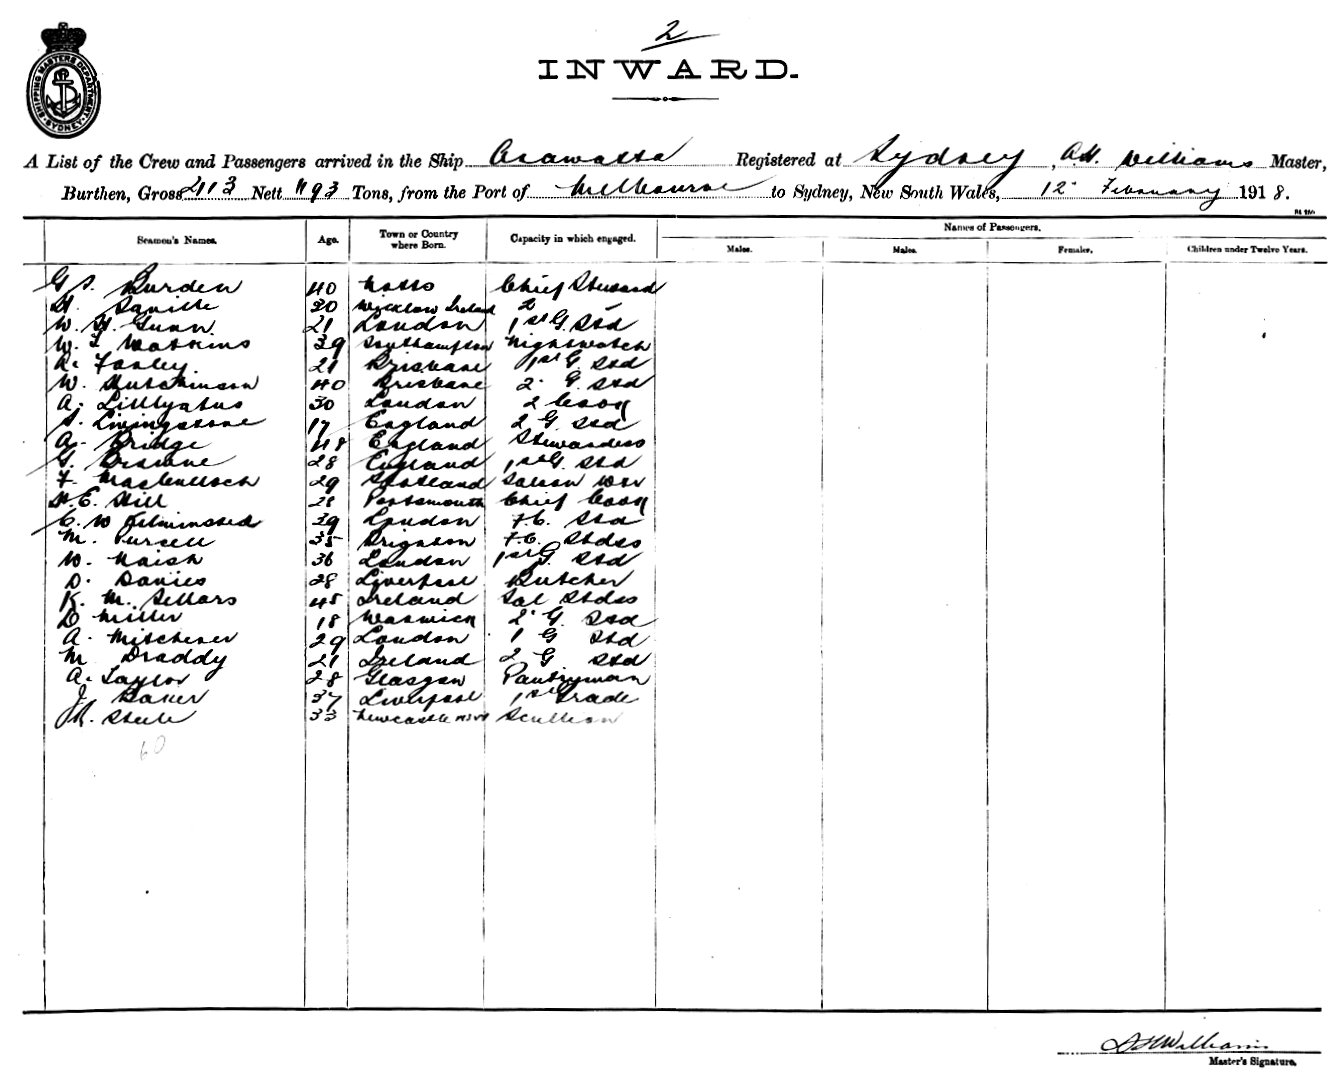 2
INWARD.
SHIPPING MASTERS DEPARTMENT SYDNEY
A List of the Crew and Passengers arrived in the Ship Arawatta Registered at Sydney, A.H. Williams Master,
Burthen, Gross 2113 Nett 1193 Tons, from the Port of Melbourne to Sydney, New South Wales, 12 February 1918.
Seamen's Names. Age. Town or Country where Born. Capacity in which engaged. Names of Passengers.
Males. Males. Females. Children under Twelve Years.
G S. Burden 40 Notts Chief Steward
H. Saville 30 Wicklow Ireland 2 "
W. H. Gunn 21 London 1st G. Std
W. T Watkins 39 Southampton Nightwatch
R. Fawley 21 Brisbane 1st G. Std
W. Hutchinson 40 Brisbane 2 G. Std
A. 30 London 2 Cook
S. Livingstone 17 England 2 G Std
A. Bridge 48 England Stewardess
G. 28 England 1st G. Std
F. MacCulloch 29 Scotland Saloon Wtr
H. E. Hill 28 Portsmouth Chief Cook
C. W 39 London F.C. Std
M. Pursell 35 Brighton F.C. Stdss
W. Naish 36 London 1st G. Std
D. Davies 28 Liverpool Butcher
K. M. Sellars 45 Ireland Sal Stdss
D Miller 18 Warwick 2 G. Std
A. Mitchener 29 London 1 G Std
M Draddy 21 Ireland 2 G Std
A. Taylor 28 Glasgow Pantryman
J. Baker 37 Liverpool 1st Grade
J R. Steele 33 Newcastle NSW Scullion
60
A H Williams
Master's Signature.